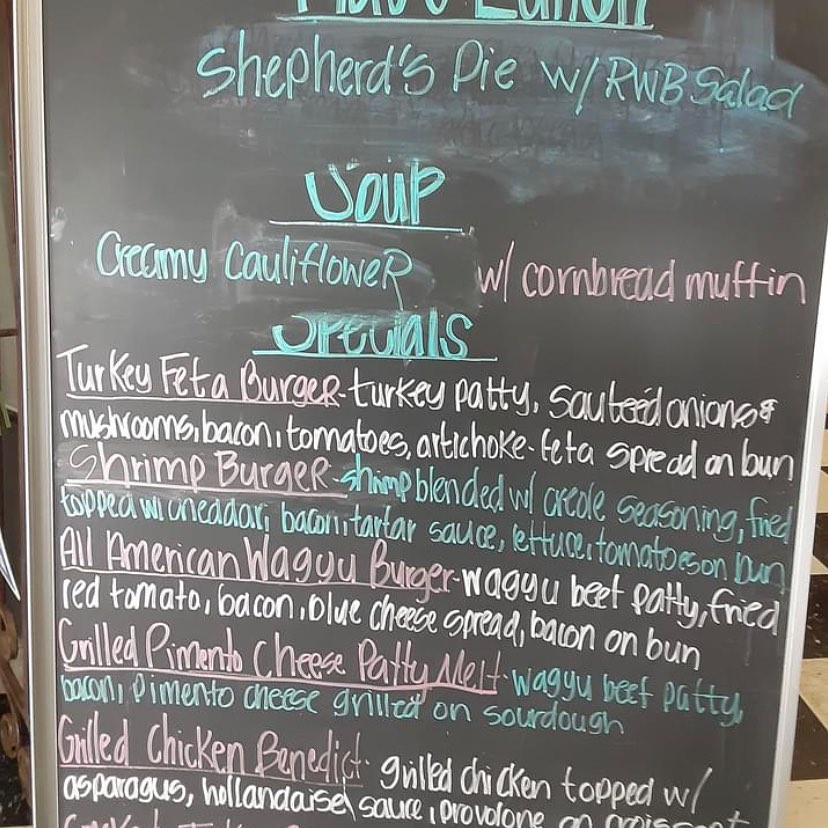 Shepherd's Pie w/ RWB Salad
Soup
Creamy Cauliflower w/ cornbread muffin
Specials
Turkey Feta Burger - turkey patty, sauteéd onions &
mushrooms, bacon, tomatoes, artichoke-feta spread on bun
Shrimp Burger - shrimp blended w/ creole seasoning, fried
topped w/ cheddar, bacon, tartar sauce, lettuce, tomatoes on bun
All American Wagyu Burger - wagyu beef patty, fried
red tomato, bacon, blue cheese spread, bacon on bun
Grilled Pimento Cheese Patty Melt - wagyu beef patty,
bacon, pimento cheese grilled on sourdough
Grilled Chicken Benedict - grilled chicken topped w/
asparagus, hollandaise sauce, provolone on croissant